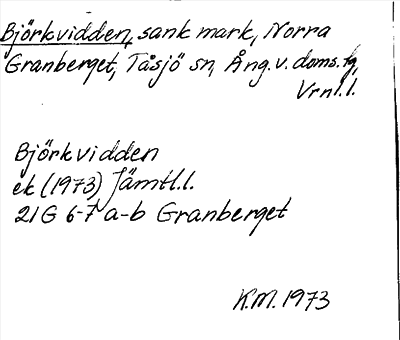 Björkvidden, sank mark, Norra
Granberget, Tåsjö sn, Ång. v. doms. fg,
Vrnl. l.
Björkvidden
ek (1973) Jämtl. l.
21G 6-7 a-b Granberget
K.M. 1973